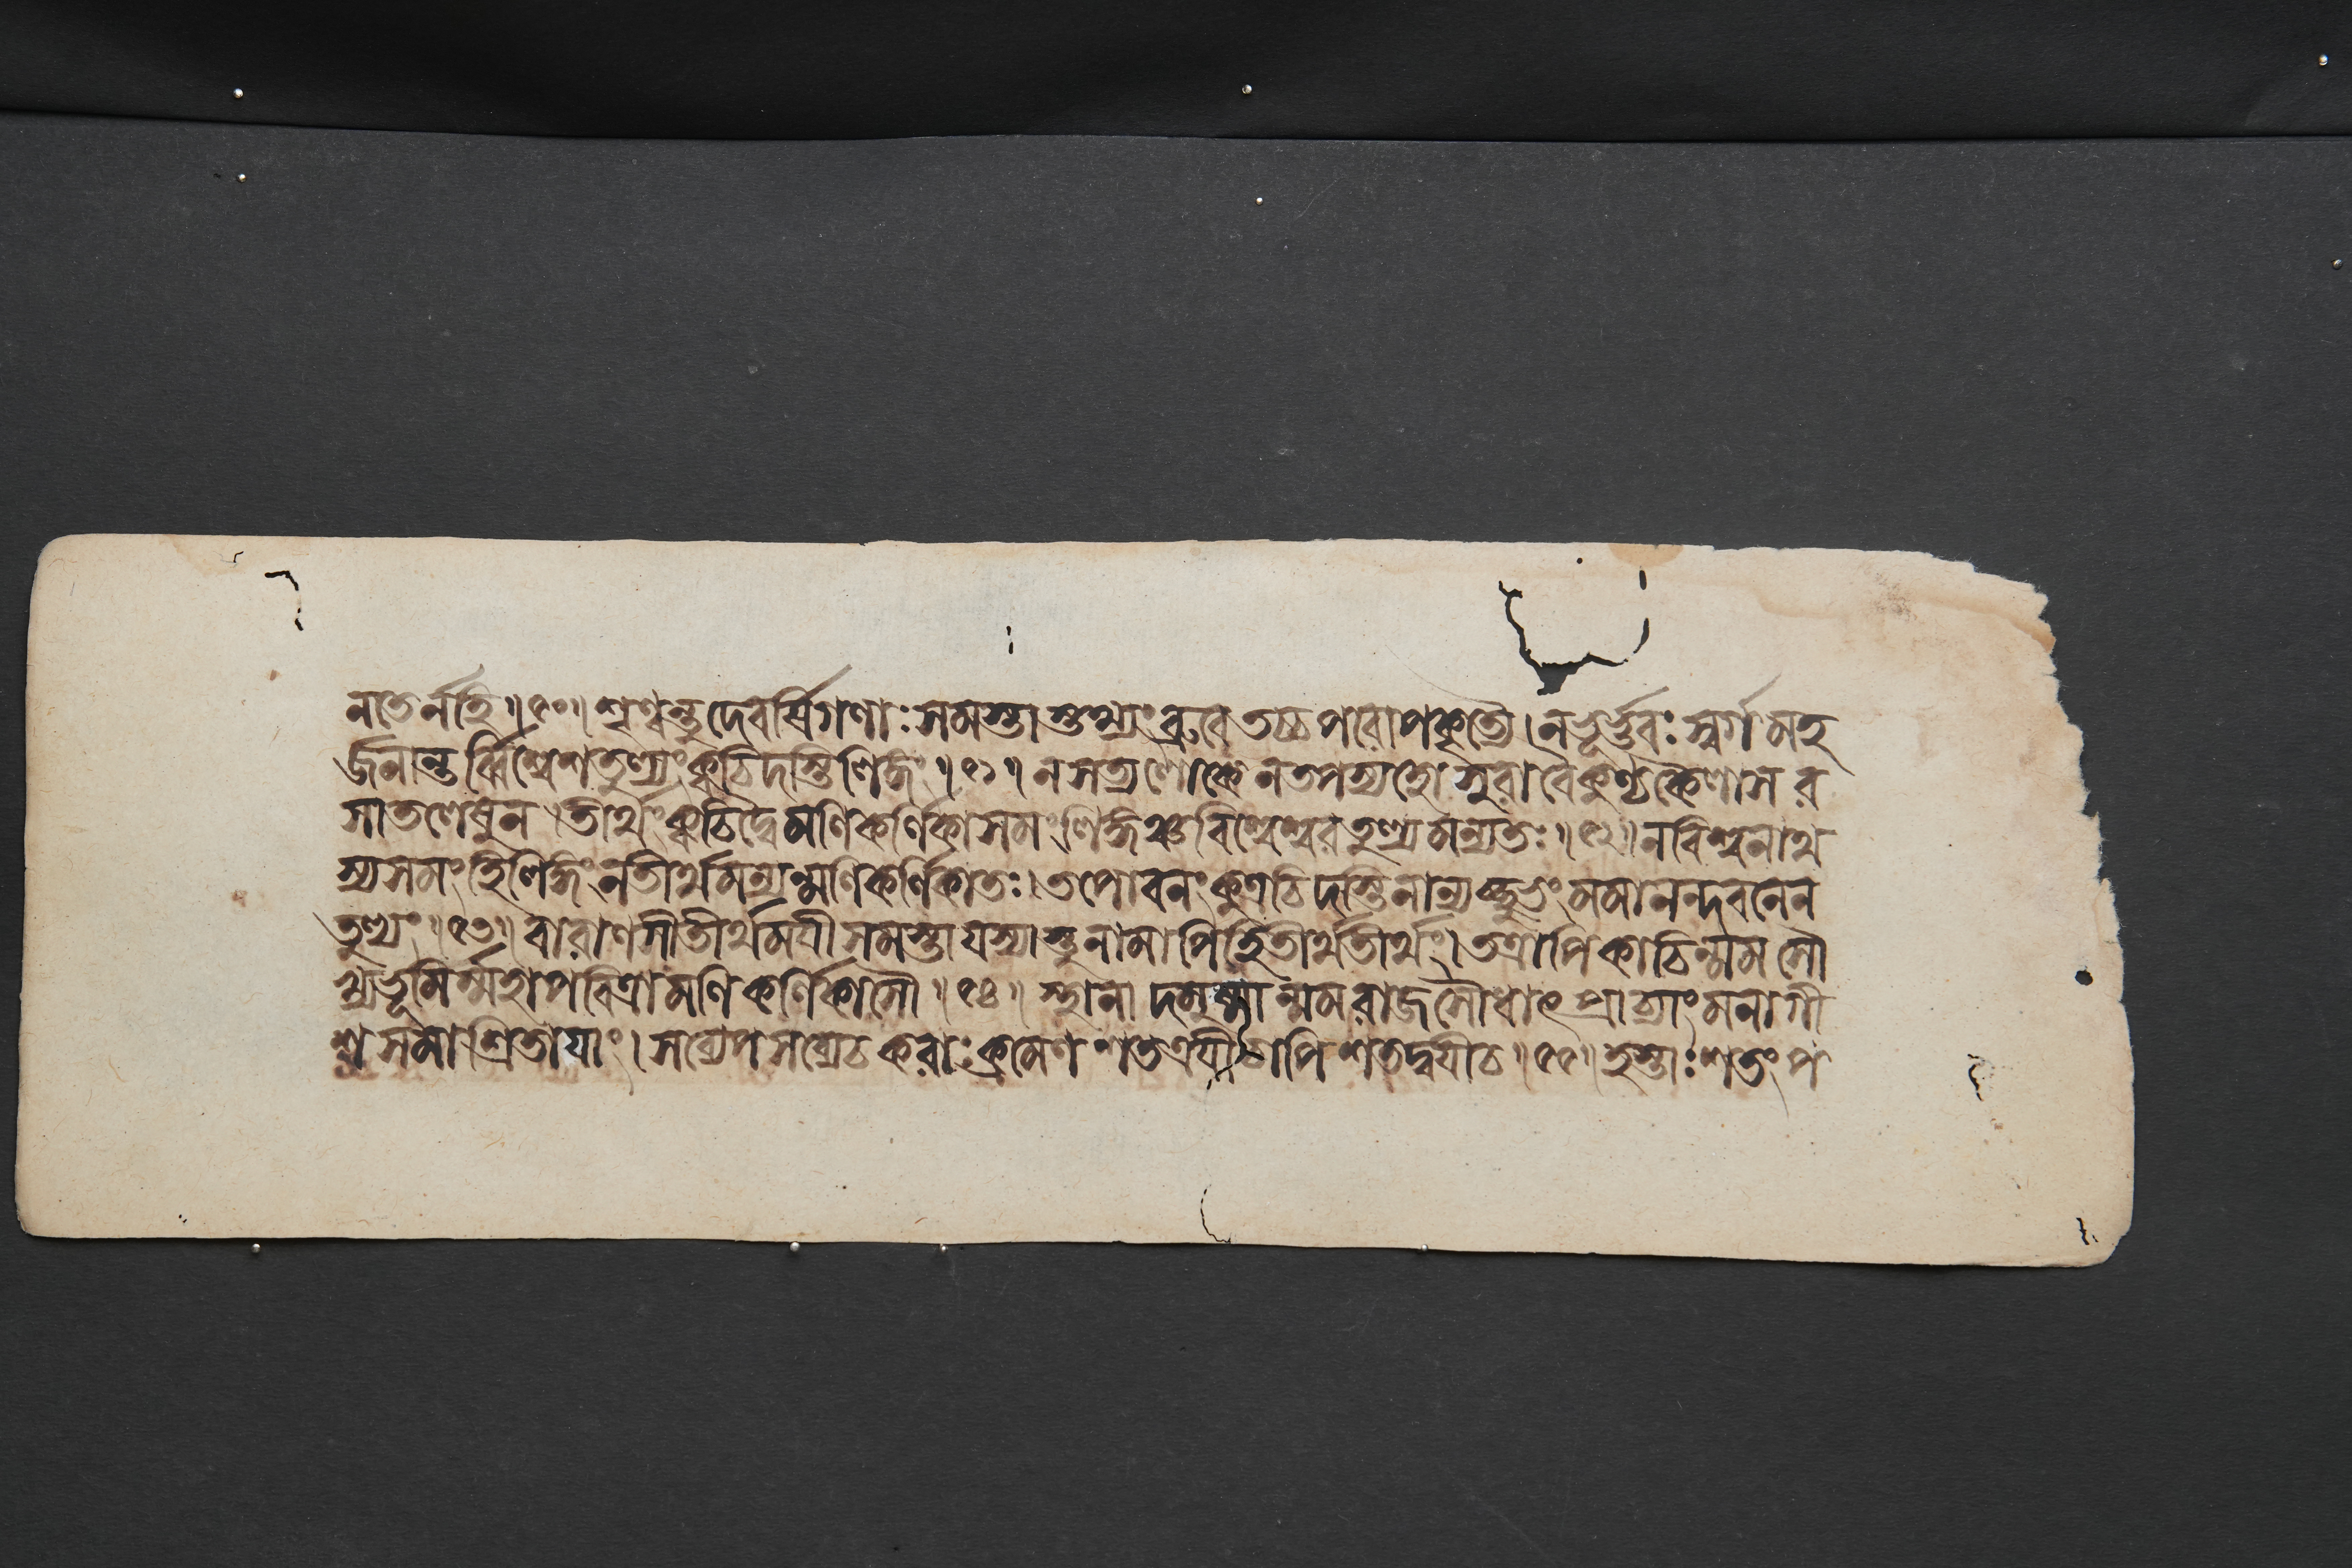 নাতর্নহি॥৫০॥শৃণ্বন্তুদেবর্ষিগণাঃসমস্তাস্তথ্যংব্রুবেতচ্চপরোপকৃত্যৈ।নভূর্ভুবঃস্বর্গমহ
র্জনান্তর্ব্বিশ্বেশতুল্যংক্বচিদস্তিলিঙ্গং॥৫১॥নসত্যলোকেনতপস্যহোসুরাবৈকুণ্ঠকৈলাসর
সাতলেষুন।তীর্থংক্বচিদ্বৈমণিকর্ণিকাসমংলিঙ্গঞ্চবিশ্বেশ্বরতুল্যমন্যতঃ॥৫২॥নবিশ্বনাথ
স্যসমংহিলিঙ্গংনতীর্থমন্যন্মণিকর্ণিকাতঃ।তপোবনংকুত্রচিদস্তিনান্যচ্ছুভংমমানন্দবনেন
তুল্যং॥৫৩॥বারাণসীতীর্থময়ীসমস্তাযস্যাস্তুনামাপিহিতীর্থতীর্থং।তত্রাপিকাচিন্মমসৌ
খ্যভূমির্ম্মহাপবিত্রামণিকর্ণিকাসৌ॥৫৪॥স্থানাদমুষ্মান্মমরাজসৌধাৎপ্রাচ্যাংমনাগী
শসমাশ্রিতায়াং।সব্যেপসব্যেচকরাঃক্রমেণশতত্রয়ীচাপিশতদ্বয়ীচ॥৫৫॥হস্তাঃশতংপ